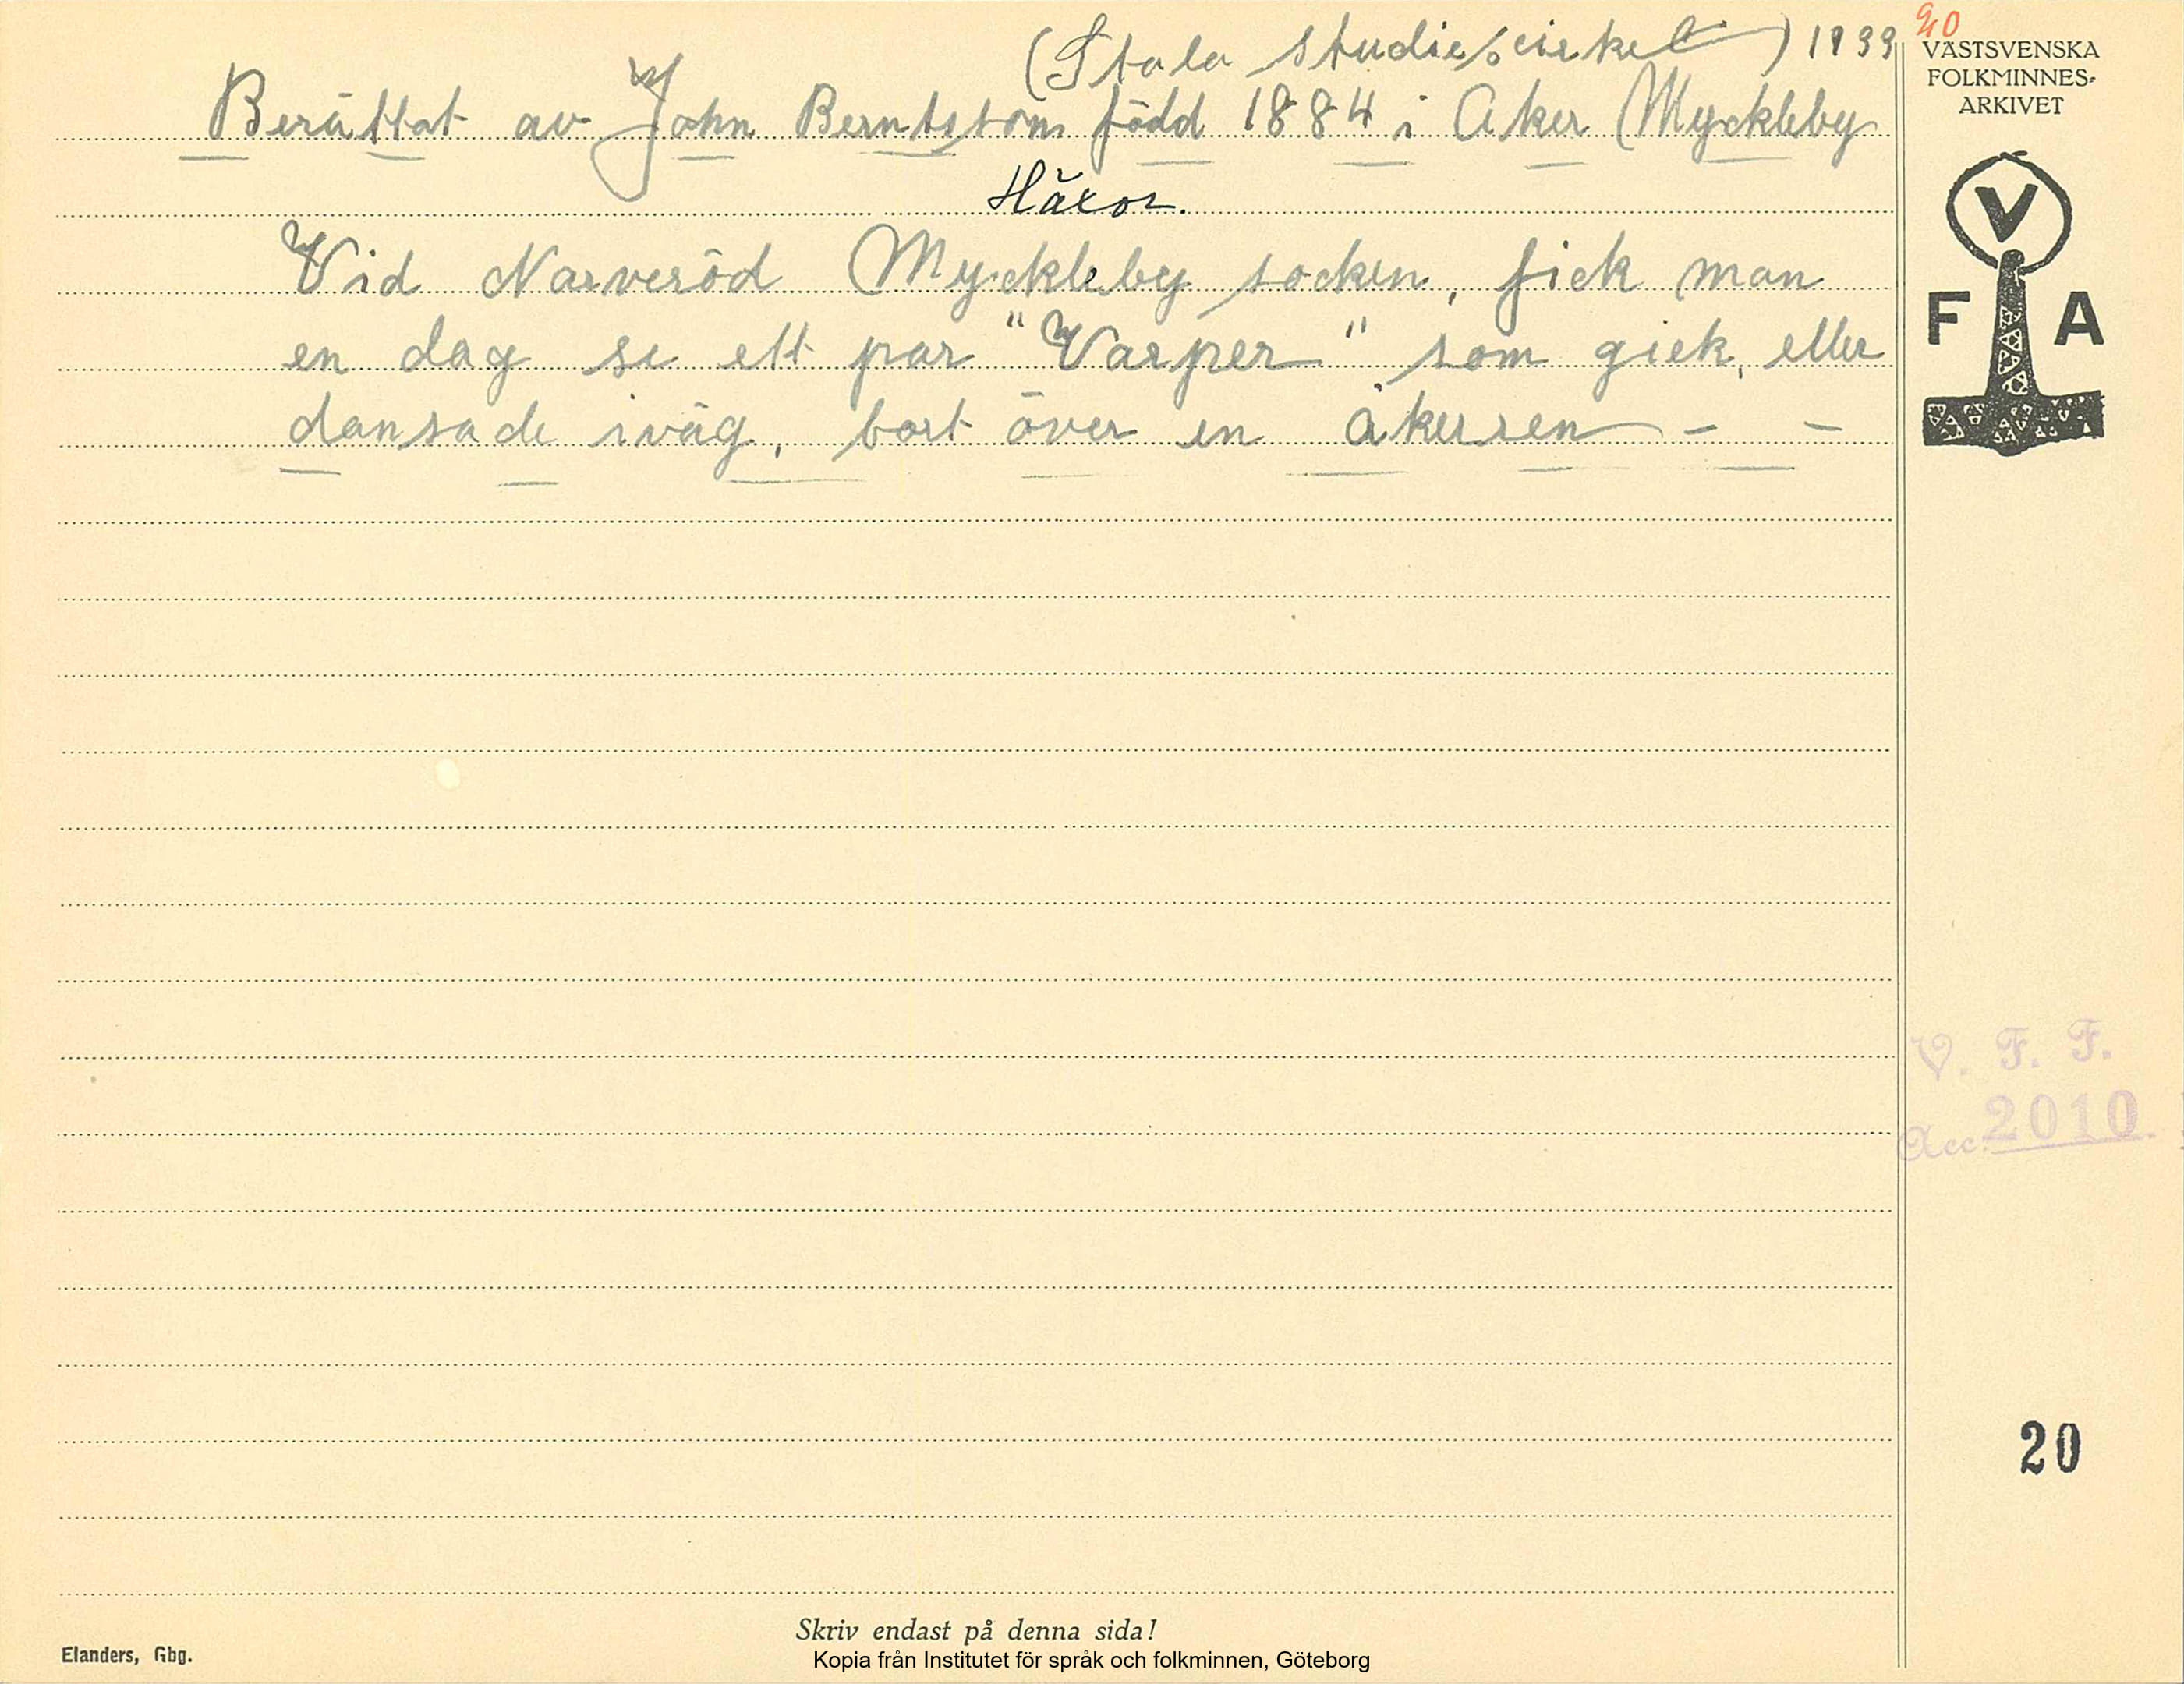 (Stala studiescirkel) 1933
Berättat av John Berntstom född 1884 i Aker Myckleby
Häxor.
Vid Narveröd Myckleby socken, fick man
en dag se ett par "Varper" som gick, eller
dansade iväg, bort över en åkerren - -
VÄSTSVENSKA
FOLKMINNES-
ARKIVET
V
F A
V. F. F.
Acc. 2010.
20
Skriv endast på denna sida!
Elanders, Gbg.
Kopia från Institutet för språk och folkminnen, Göteborg